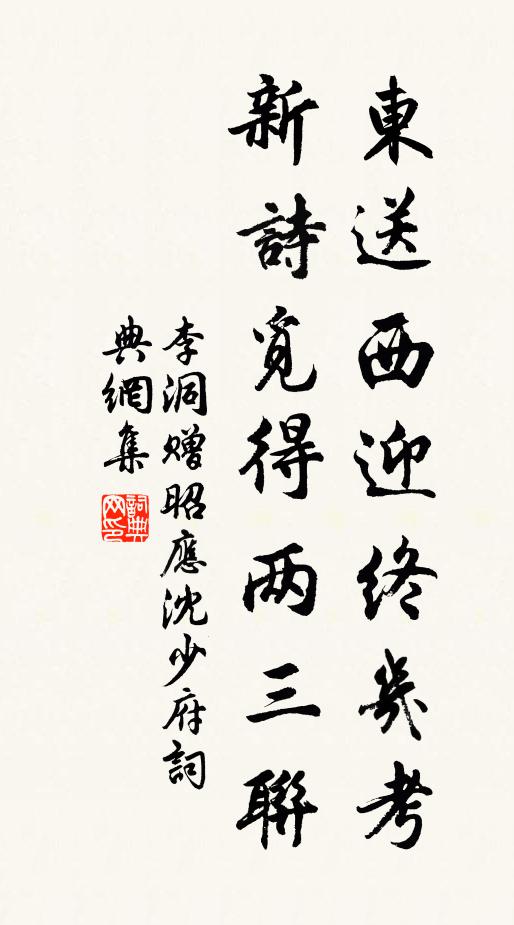 東送西迎終幾考
新詩覓得两三聯
李洞赠昭應沈少府詞
典網集
詞典
网印